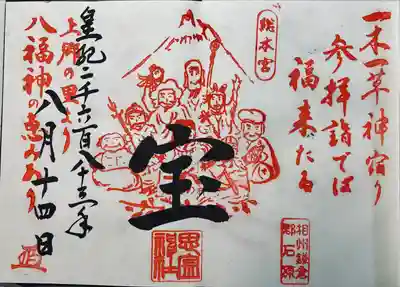 一木一草神宿り
参拝詣では
福来たる
総本宮
宝
思金神社
相州鎌倉
郡石原
皇紀二千六百八十三年
上郷の里より
八月十四日
八福神の恵みあり